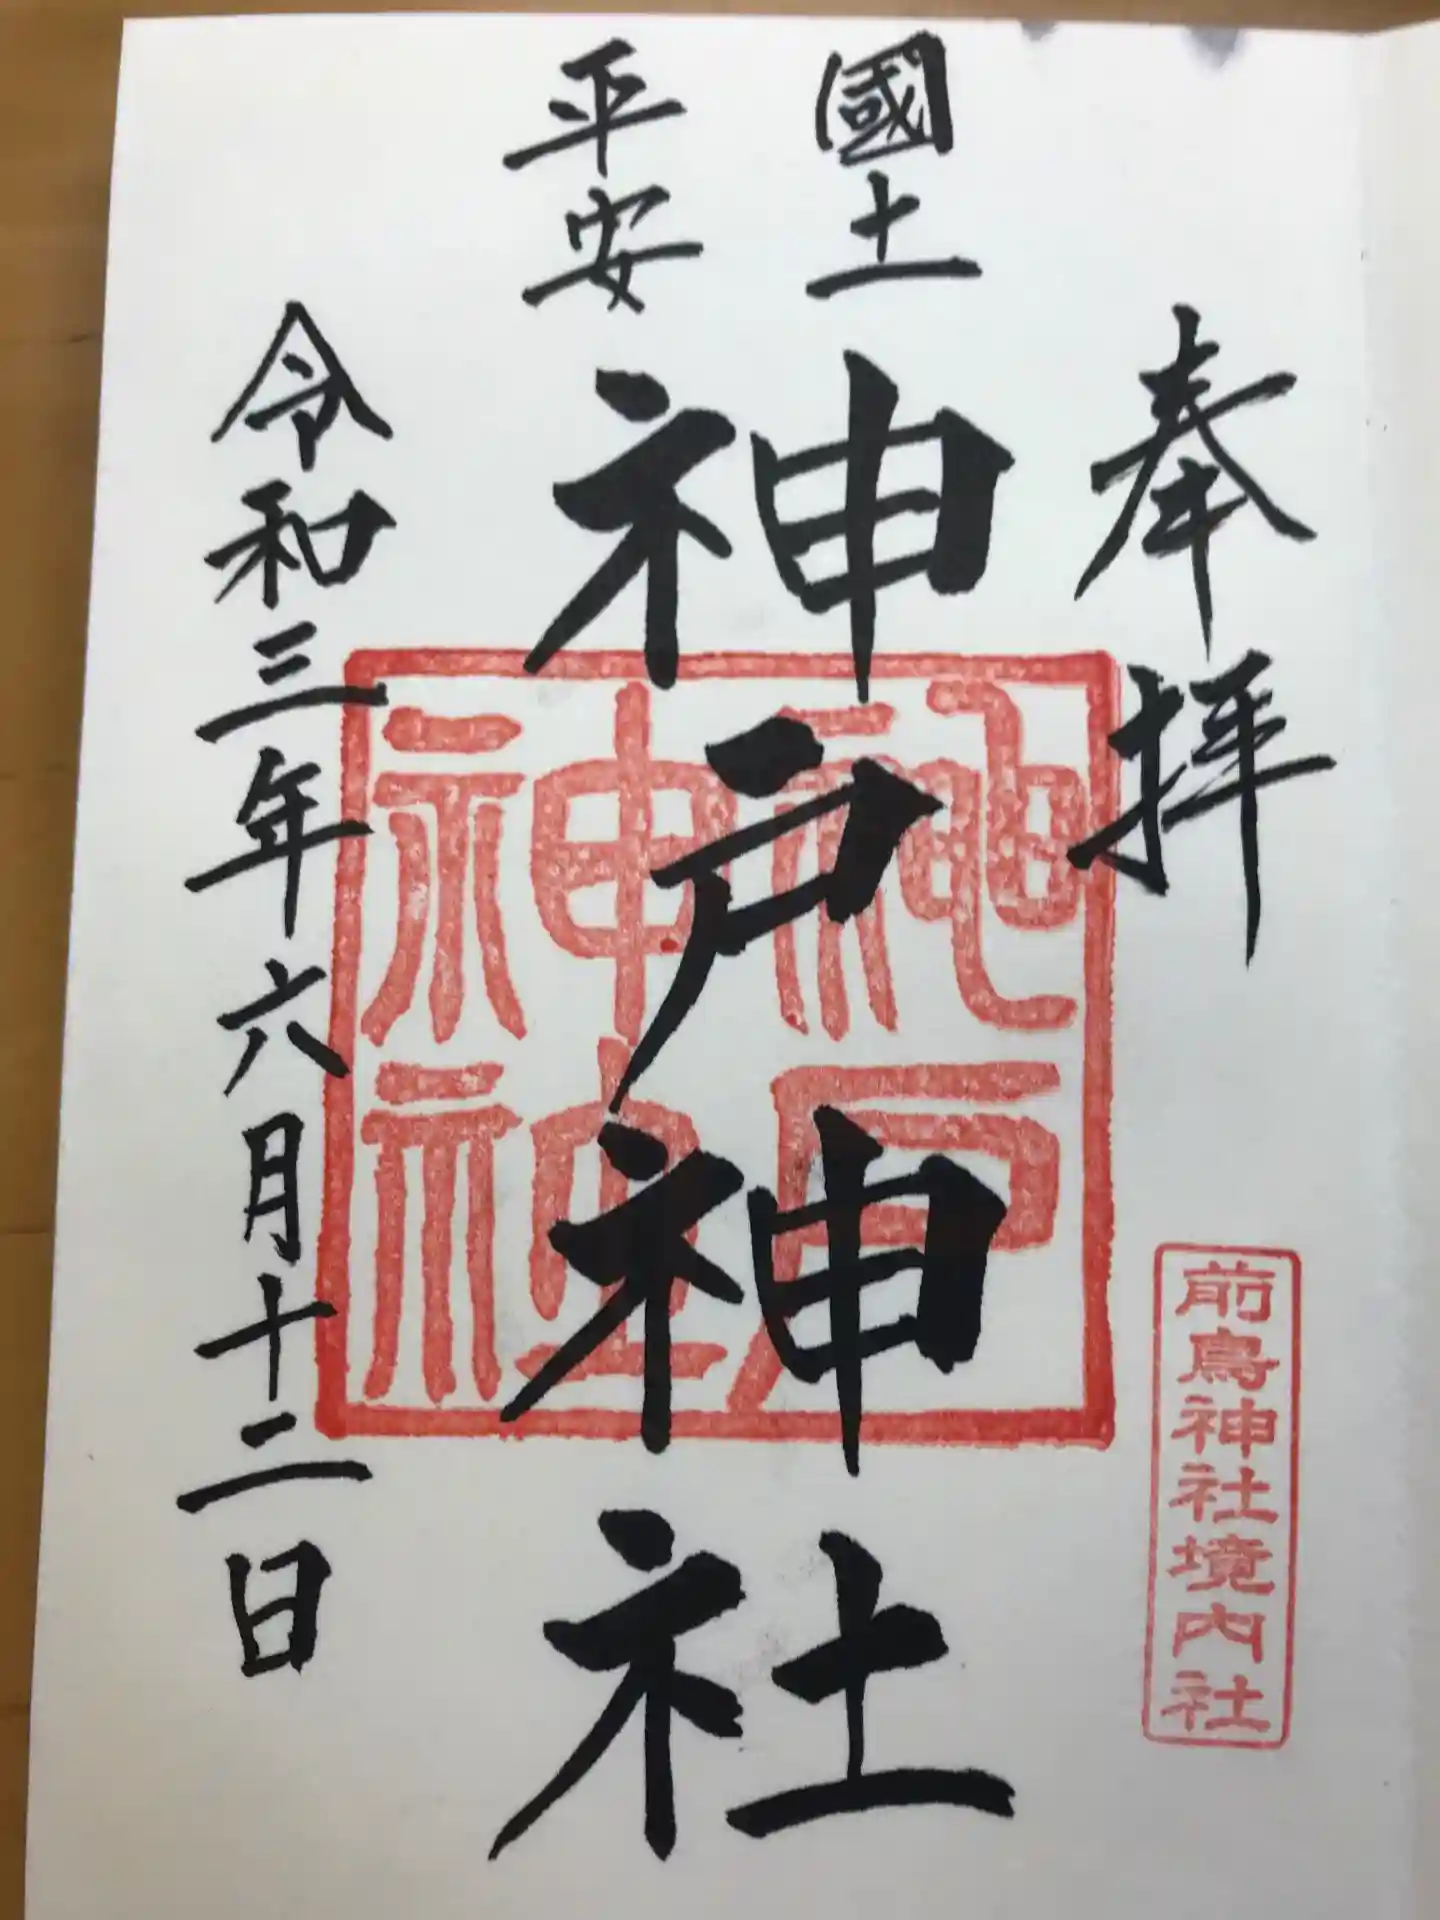 奉拝
國土
平安
神戸神社
令和三年六月十二日
神戸
神社
前鳥神社境内社